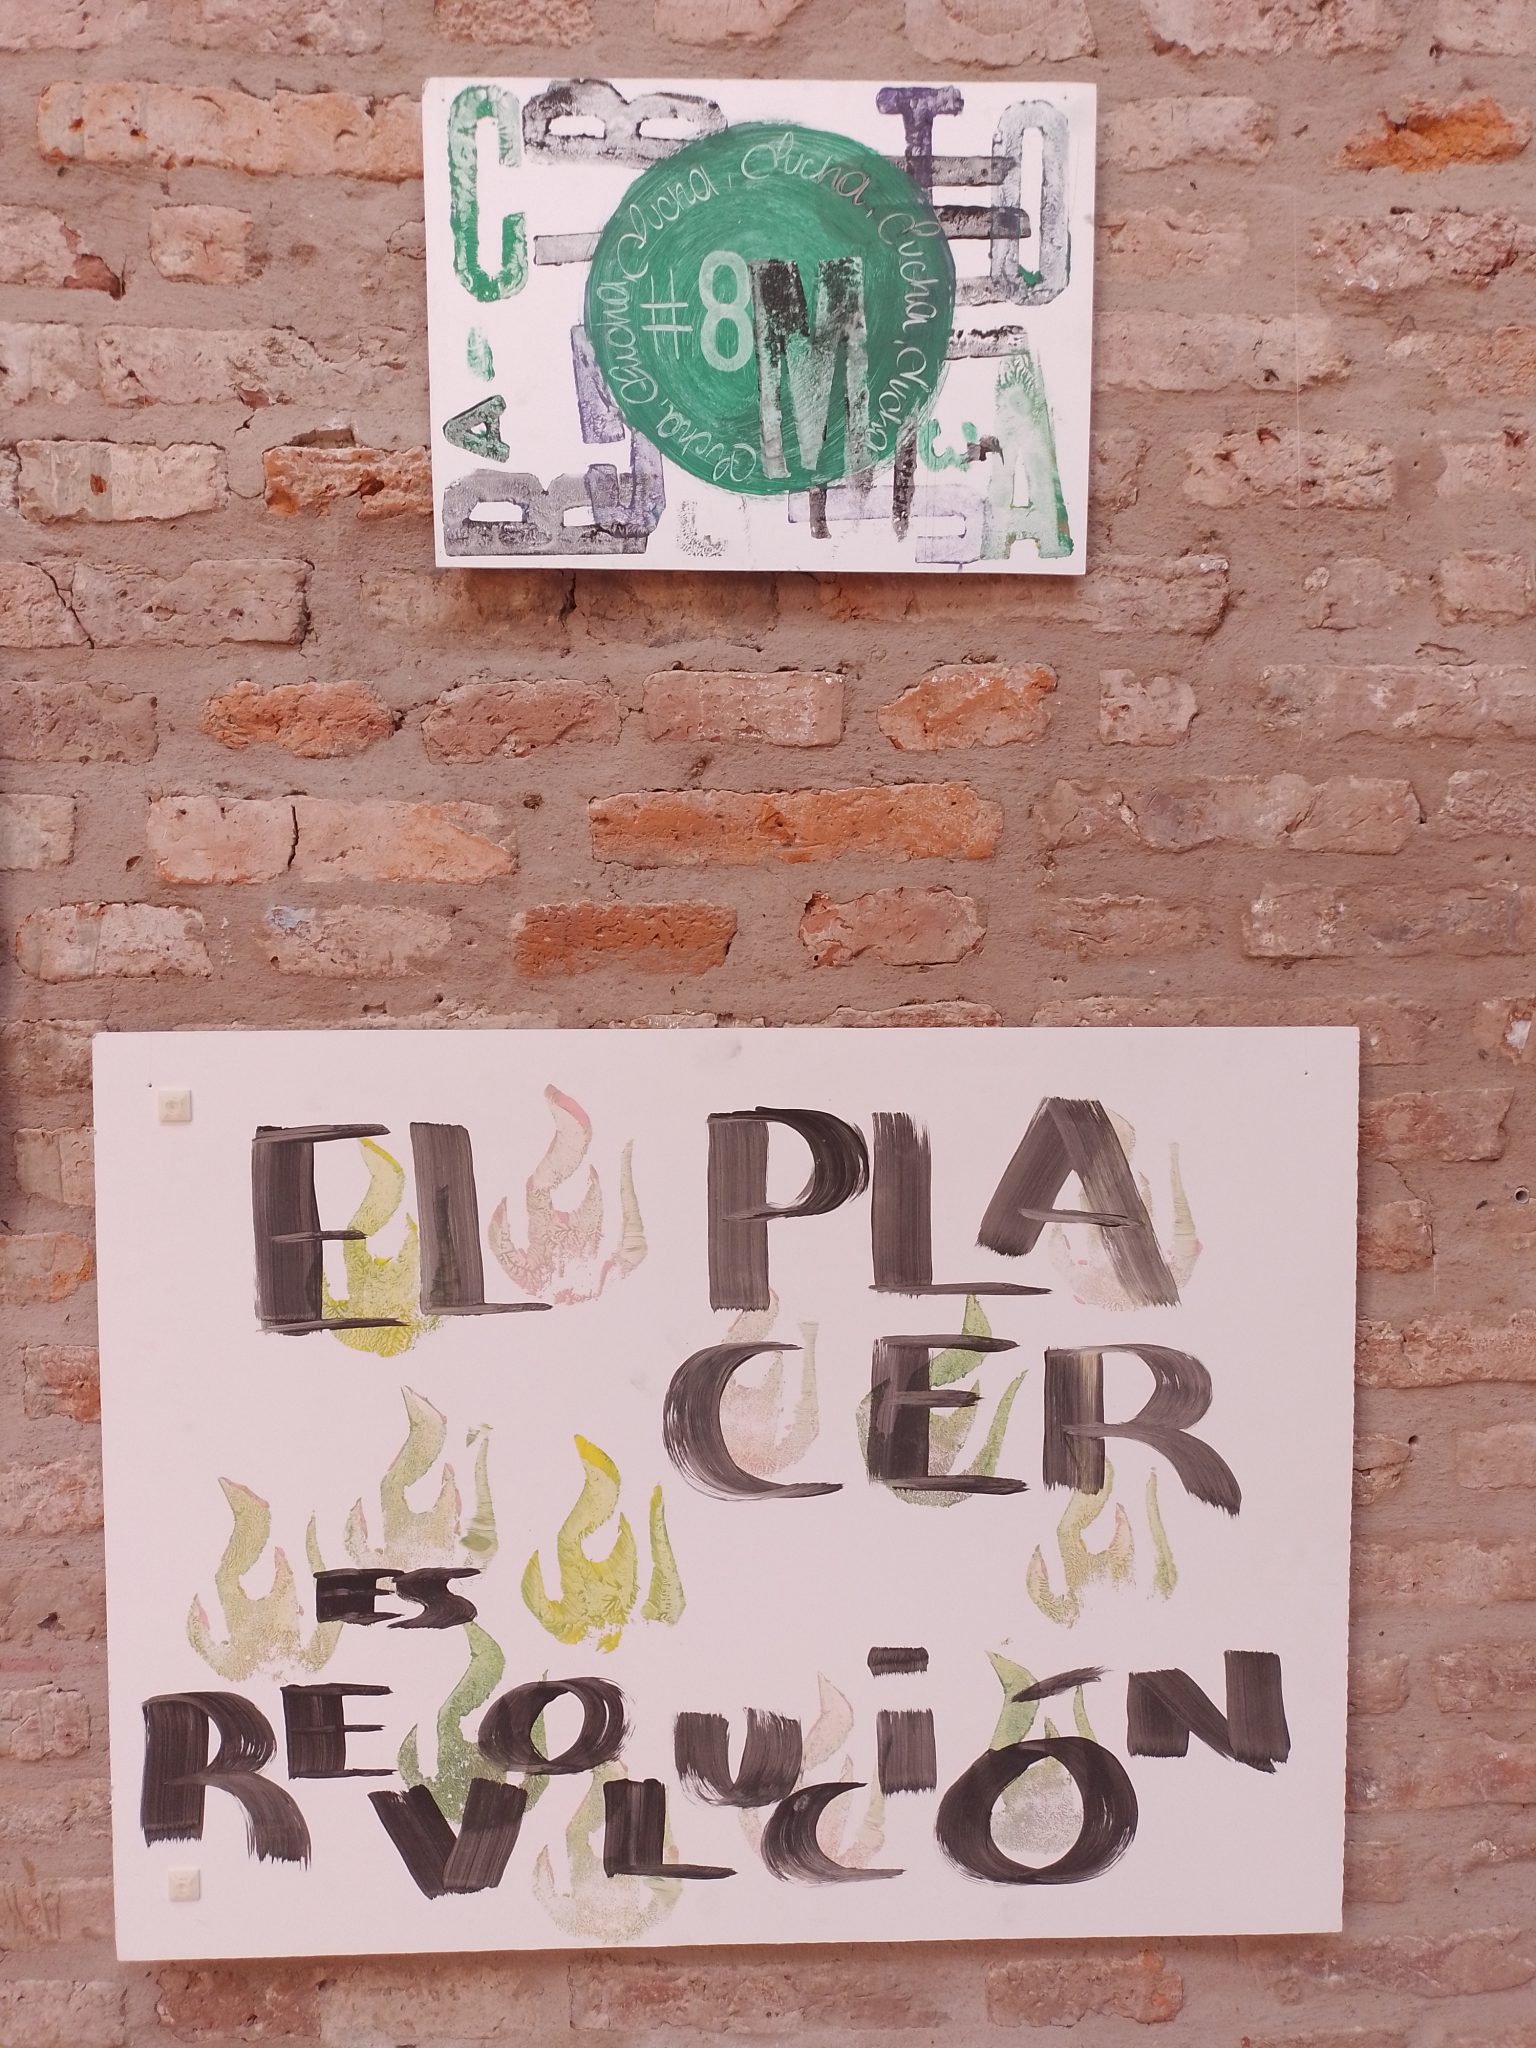 Lucha, Lucha, Lucha, Lucha, Lucha, Lucha
#8M
EL PLA
CER
ES
REVOLUCIÓN